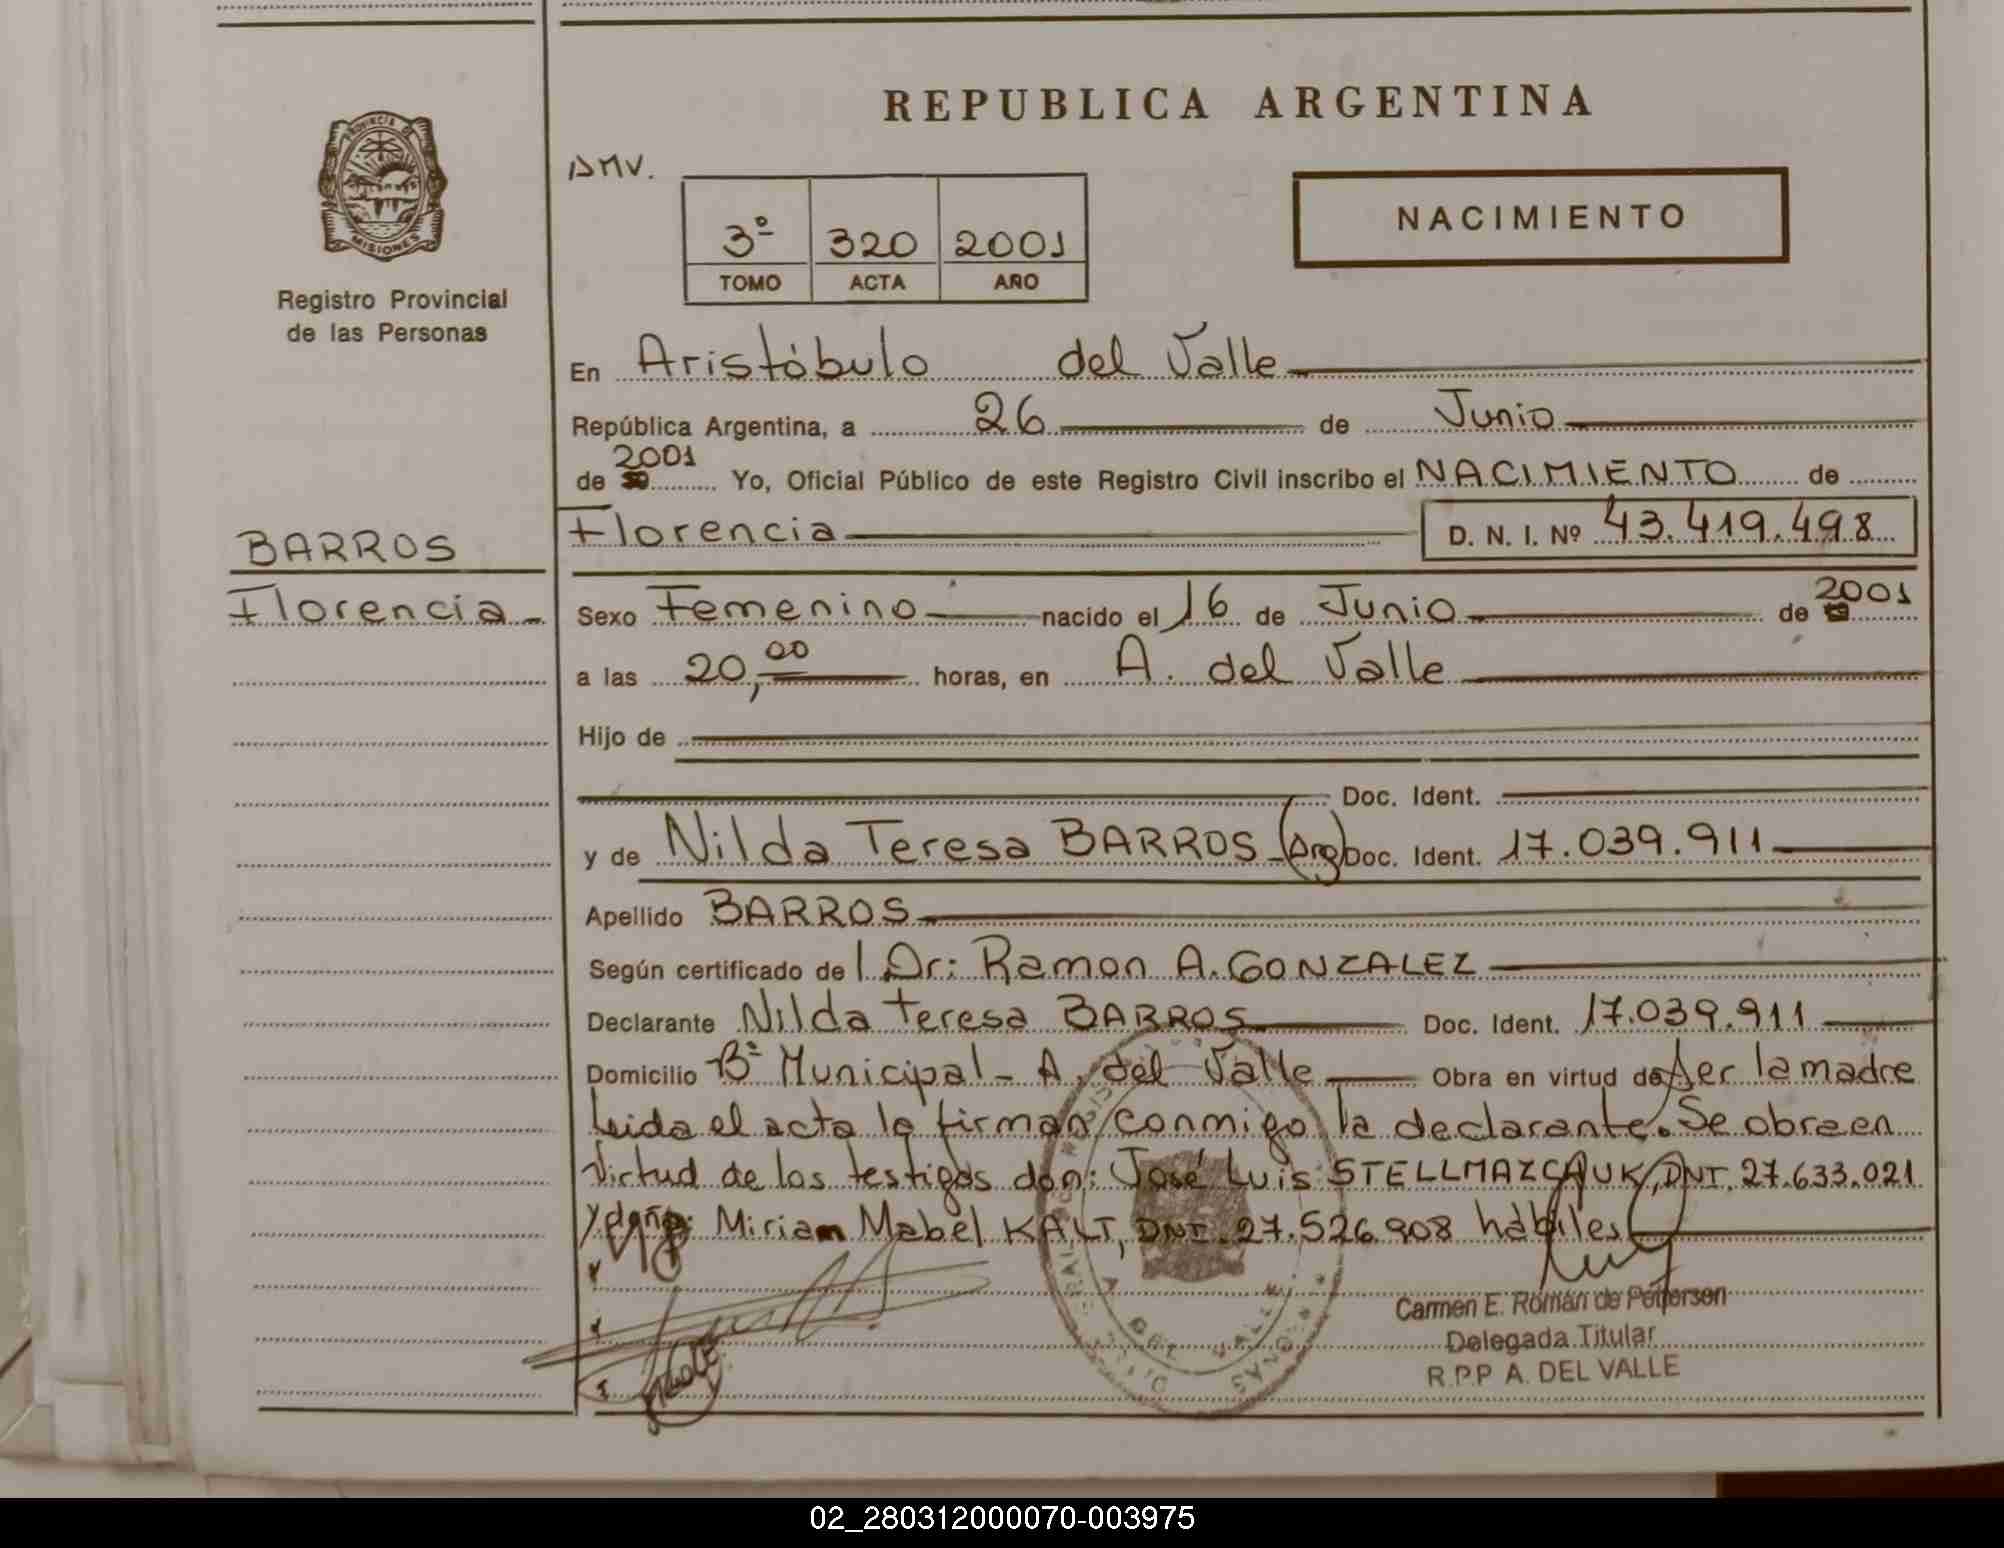 REPUBLICA ARGENTINA
PROVINCIA DE MISIONES
Registro Provincial
de las Personas
DMV.
3º 320 2001
TOMO ACTA AÑO
NACIMIENTO
En Aristóbulo del Valle
República Argentina, a 26 de Junio
2001
de Yo, Oficial Público de este Registro Civil inscribo el NACIMIENTO de
Florencia D. N. I. Nº 43.419.498
BARROS
Florencia
Sexo Femenino nacido el 16 de Junio de 2001
a las 20,00 horas, en A. del Valle
Hijo de
Doc. Ident.
y de Nilda Teresa BARROS (Arg) Doc. Ident. 17.039.911
Apellido BARROS
Según certificado del Dr: Ramon A. GONZALEZ
Declarante Nilda Teresa BARROS Doc. Ident. 17.039.911
Domicilio Bº Municipal - A. del Valle Obra en virtud de ser la madre
Leida el acta la firman conmigo la declarante. Se obra en
virtud de los testigos don: José Luis DNI. 27.633.021
y doña: Miriam Mabel KALT, DNI. 27.526.908 hábiles
Carmen E. Román de Pettersen
Delegada Titular
R.P.P A. DEL VALLE
02_280312000070-003975